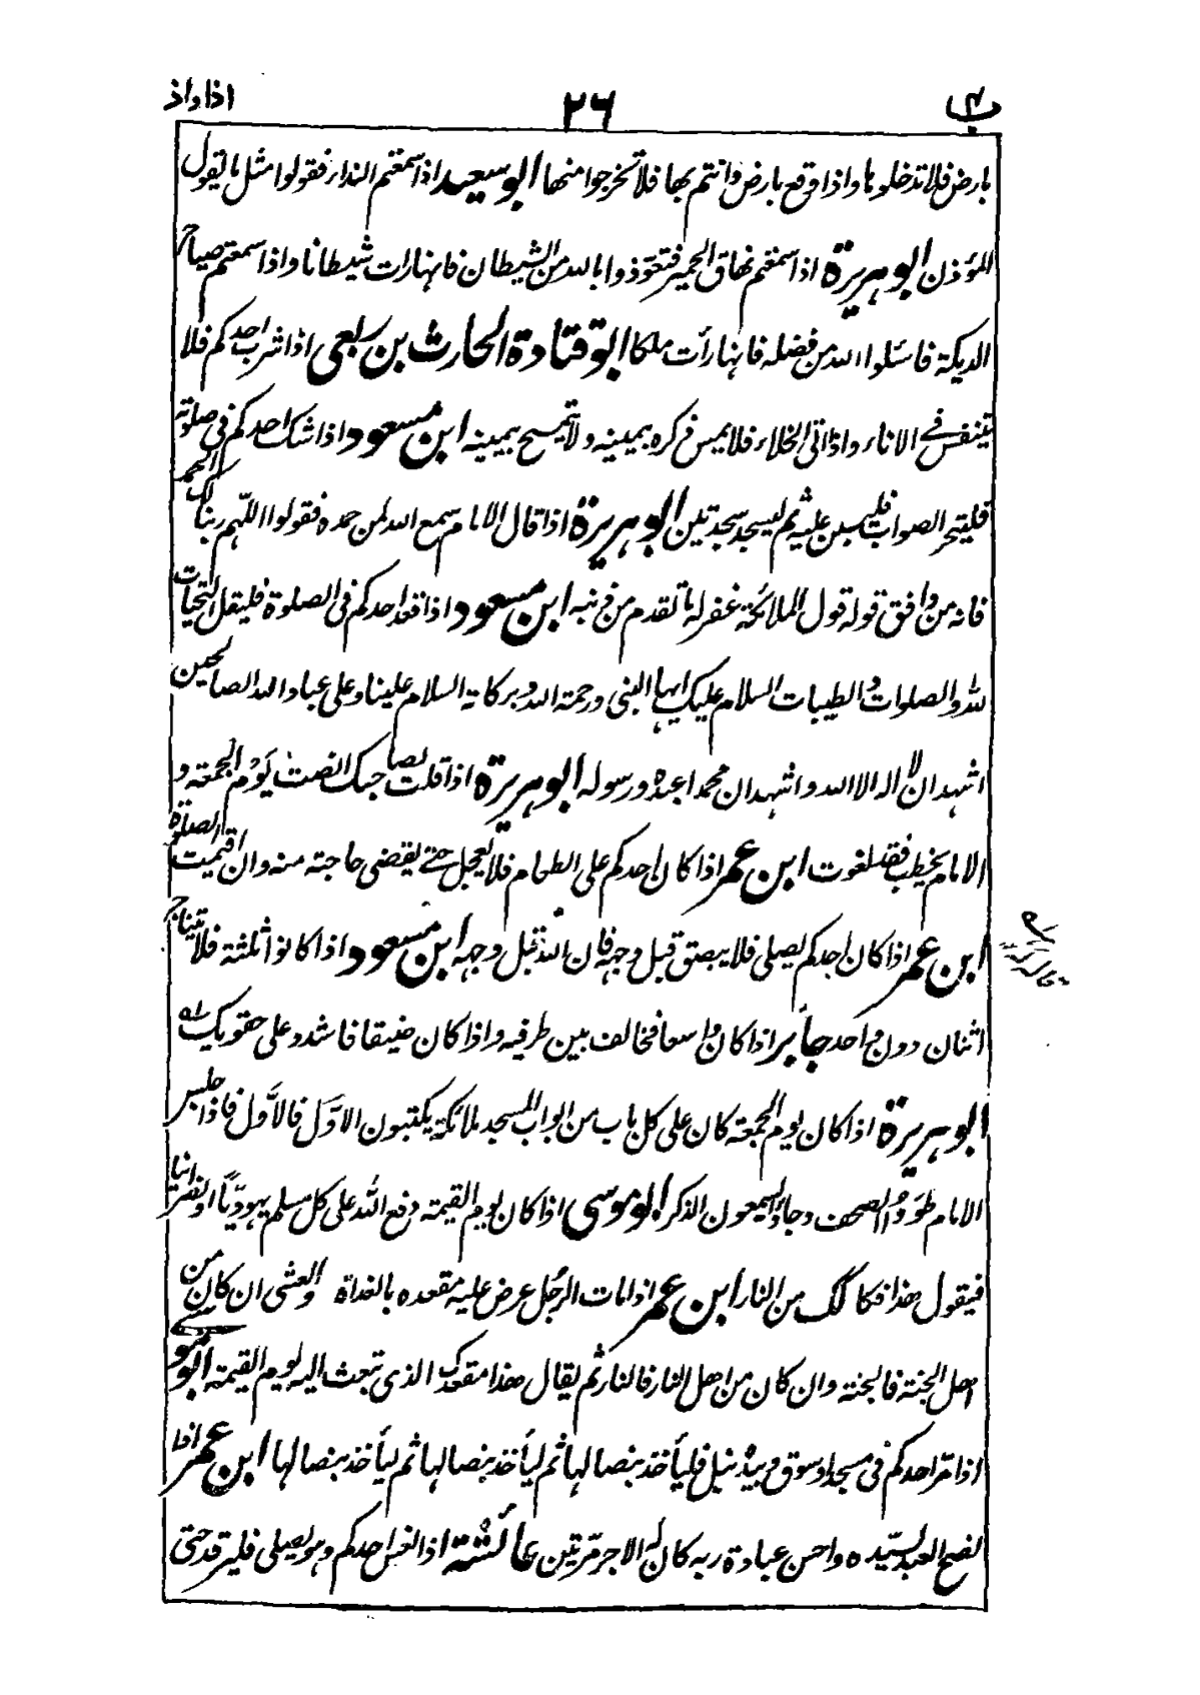 باب ٢٦ اذا واذ
بارض فلا تدخلوها واذا وقع بارض وانتم بها فلا تخرجوا منها ابو سعيد اذا سمعتم النداء فقولوا مثل ما يقول
المؤذن ابو هريرة اذا سمعتم نهاق الحمير فتعوذوا بالله من الشيطان فانها رات شيطانا واذا سمعتم صياح
الديكة فاسئلوا الله من فضله فانها رأت ملكا ابو قتادة الحارث بن ربعى اذا شرب احدكم فلا
يتنفس فى الاناء واذا اتى الخلاء فلا يمس ذكره بيمينه ولا يتمسح بيمينه ابن مسعود اذا شك احدكم فى صلوته
فليتحر الصواب فليبن عليه ثم ليسجد سجدتين ابو هريرة اذا قال الامام سمع الله لمن حمده فقولوا اللهم ربنا لك الحمد
فانه من وافق قوله قول الملائكة غفر له ما تقدم من ذنبه ابن مسعود اذا قعد احدكم فى الصلوة فليقل التحيات
لله والصلوات والطيبات السلام عليك ايها النبى ورحمة الله وبركاته السلام علينا وعلى عباد الله الصالحين
اشهد ان لا اله الا الله واشهد ان محمدا عبده ورسوله ابو هريرة اذا قلت لصاحبك انصت يوم الجمعة و
الامام يخطب فقد لغوت ابن عمر اذا كان احدكم على الطعام فلا يعجل حتى يقضى حاجته منه وان اقيمت الصلوة
ابن عمر اذا كان احدكم يصلى فلا يبصق قبل وجهه فان الله قبل وجهه ابن مسعود اذا كانوا ثلثة فلا يتناج
اثنان دون واحد جابر اذا كان واسعا فخالف بين طرفيه واذا كان ضيقا فاشدد على حقويك
ابو هريرة اذا كان يوم الجمعة كان على كل باب من ابواب المسجد ملائكة يكتبون الاول فالاول فاذا جلس
الامام طووا الصحف وجاؤا يسمعون الذكر ابو موسى اذا كان يوم القيمة دفع الله على كل مسلم يهوديا او نصرانيا
فيقول هذا فكاكك من النار ابن عمر اذا مات الرجل عرض عليه مقعده بالغداة والعشى ان كان من
اهل الجنة فالجنة وان كان من اهل النار فالنار ثم يقال هذا مقعدك الذى تبعث اليه يوم القيمة ابو موسى
اذا مر احدكم فى مسجد او سوق وبيده نبل فليأخذ بنصالها ثم ليأخذ بنصالها ثم ليأخذ بنصالها ابن عمر اذا
نصح العبد لسيده واحسن عبادة ربه كان له الاجر مرتين عائشة اذا نعس احدكم وهو يصلى فليرقد حتى